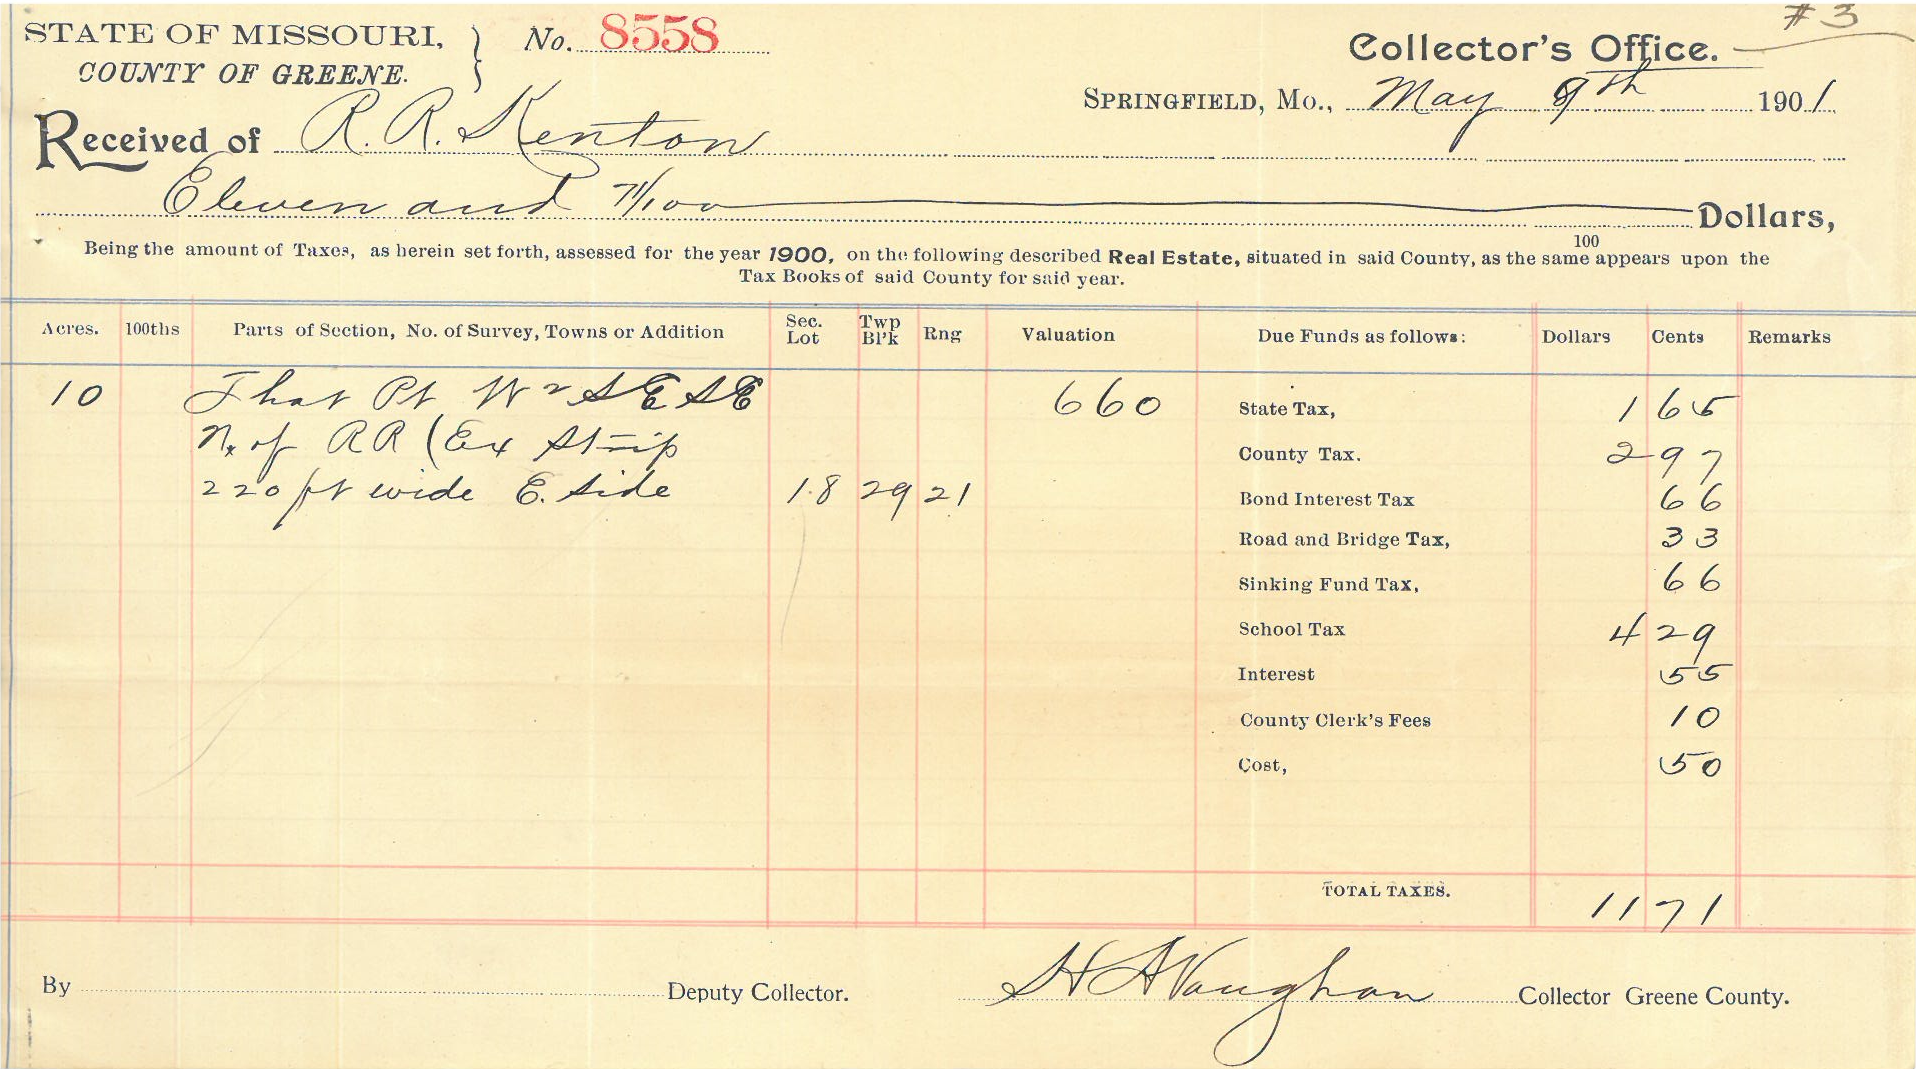 # 3
STATE OF MISSOURI, } No. 8558 Collector's Office.
COUNTY OF GREENE.
SPRINGFIELD, MO., May 9th 1901
Received of R. R. Kenton
Eleven and 71/100 Dollars,
100
Being the amount of Taxes, as herein set forth, assessed for the year 1900, on the following described Real Estate, situated in said County, as the same appears upon the
Tax Books of said County for said year.
Acres. 100ths Parts of Section, No. of Survey, Towns or Addition Sec. Lot Twp Bl'k Rng Valuation Due Funds as follows: Dollars Cents Remarks
10 That Pt W 2 SE SE 660 State Tax, 1 65
N. of RR (Ex Strip County Tax. 2 97
220 ft wide E. Side 18 29 21 Bond Interest Tax 66
Road and Bridge Tax, 33
Sinking Fund Tax, 66
School Tax 4 29
Interest 55
County Clerk's Fees 10
Cost, 50
TOTAL TAXES. 11 71
By Deputy Collector. H A Vaughan Collector Greene County.